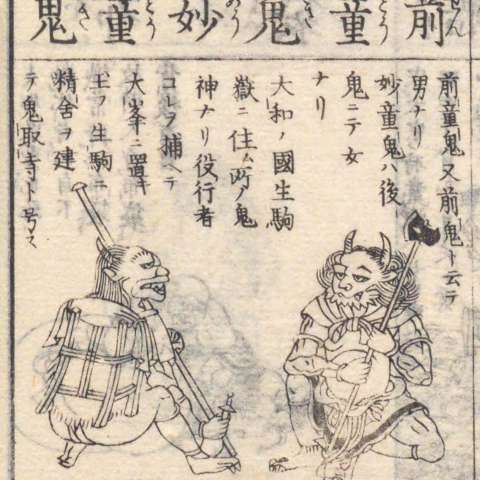 前童鬼妙童鬼
せん
とう
き
めう
とう
き
前童鬼又前鬼ト云テ
男ナリ
妙童鬼ハ後
鬼ニテ女
ナリ
大和ノ國生駒
嶽ニ住ム所ノ鬼
神ナリ役行者
コレヲ捕ヘテ
大峯ニ置キ
玉フ生駒ニ
精舍ヲ建
テ鬼取寺ト号ス